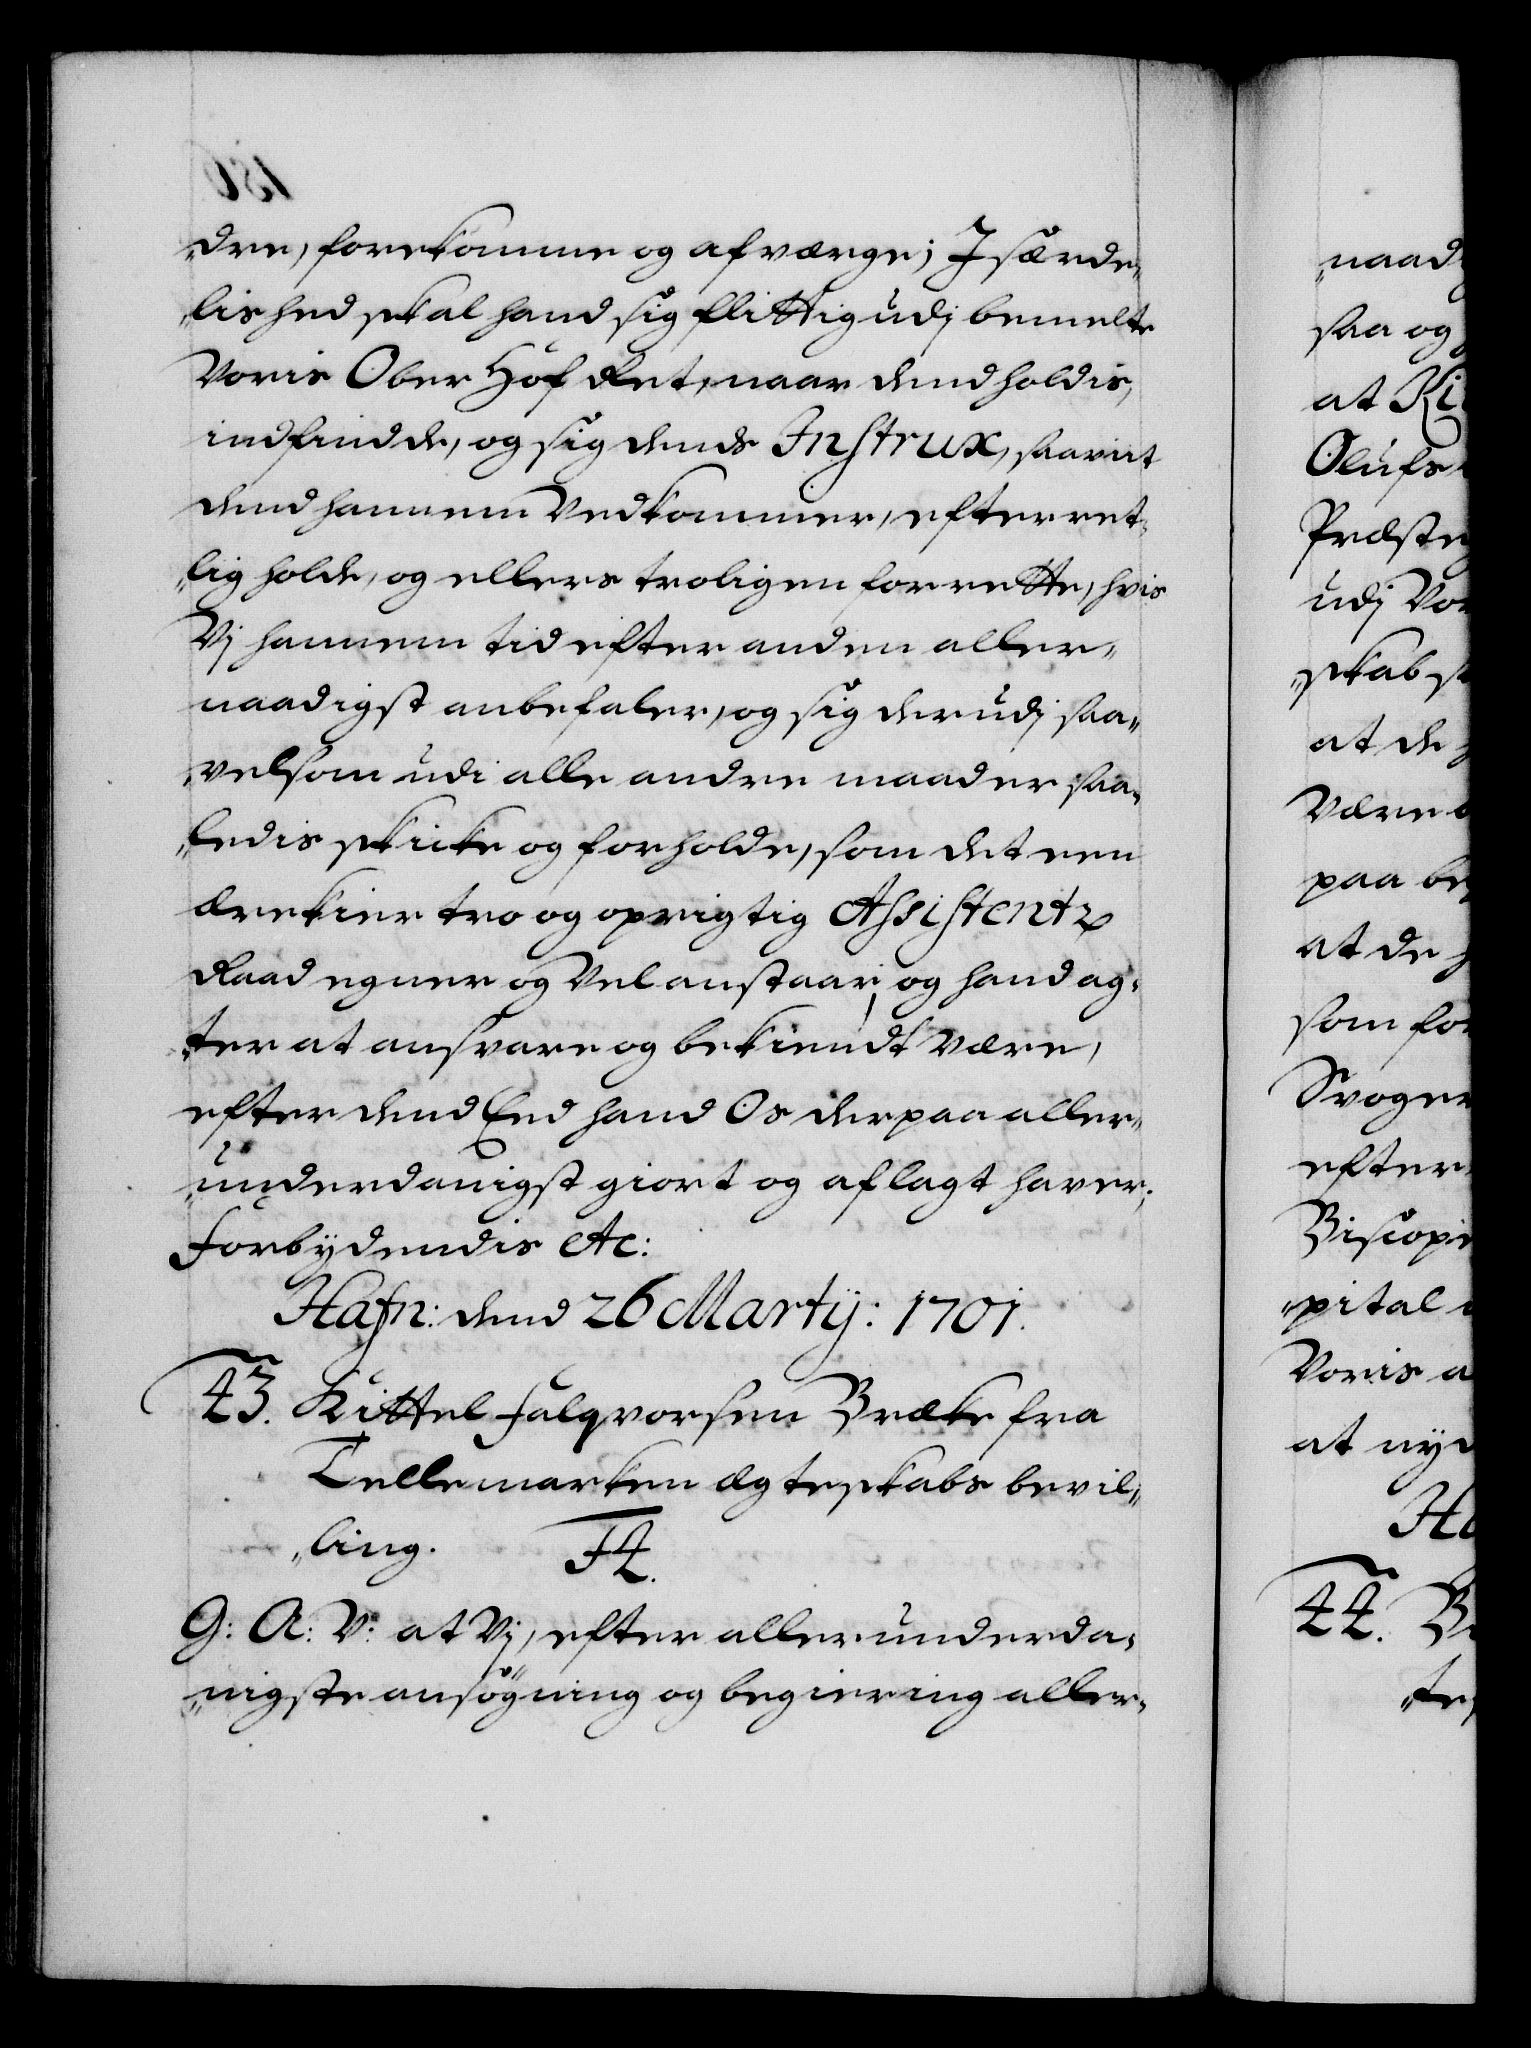 „dre, forekomme og afværge; Jsærde„
„lished skal hand sig flittig udj bemelte
Voris Ober Hof Ret, naar dend holdis,
indfindde, og sig dends Instrux, saavit
dend hannem Vedkommer, efterret„
„lig holde, og ellers troligen forrette, hvis
Vj hannem tid efter anden aller„
naadigst anbefaler, og sig derudj saa„
„velsom udi alle andre maader saa„
„ledis skicke og forholde, som det een
ærekier tro og oprigtig Assistentz
Raad egner og Vel anstaar, og hand ag„
„ter at ansvare og bekiendt Være,
efter dend Eed hand Os derpaa aller„
„underdanigst giort og aflagt haver;
Forbydendis etc:
Hafn: dend 26 Martij: 1701.
43. Kittel Falqvorsen Bræke fra
Tellemarken Ægteskabs bevil„
„ling. F4.
G: A: V: at Vj, efter allerunderda„
„nigste ansøgning og begiering aller„
„naad
saa og
at Ki
Olufs
Præste
udj Vo
„skab s
at de
Være
paa be
at de
som for
Svoger
efter
Biscopi
„pital
Voris a
at nyd
Ha
44. B
„te